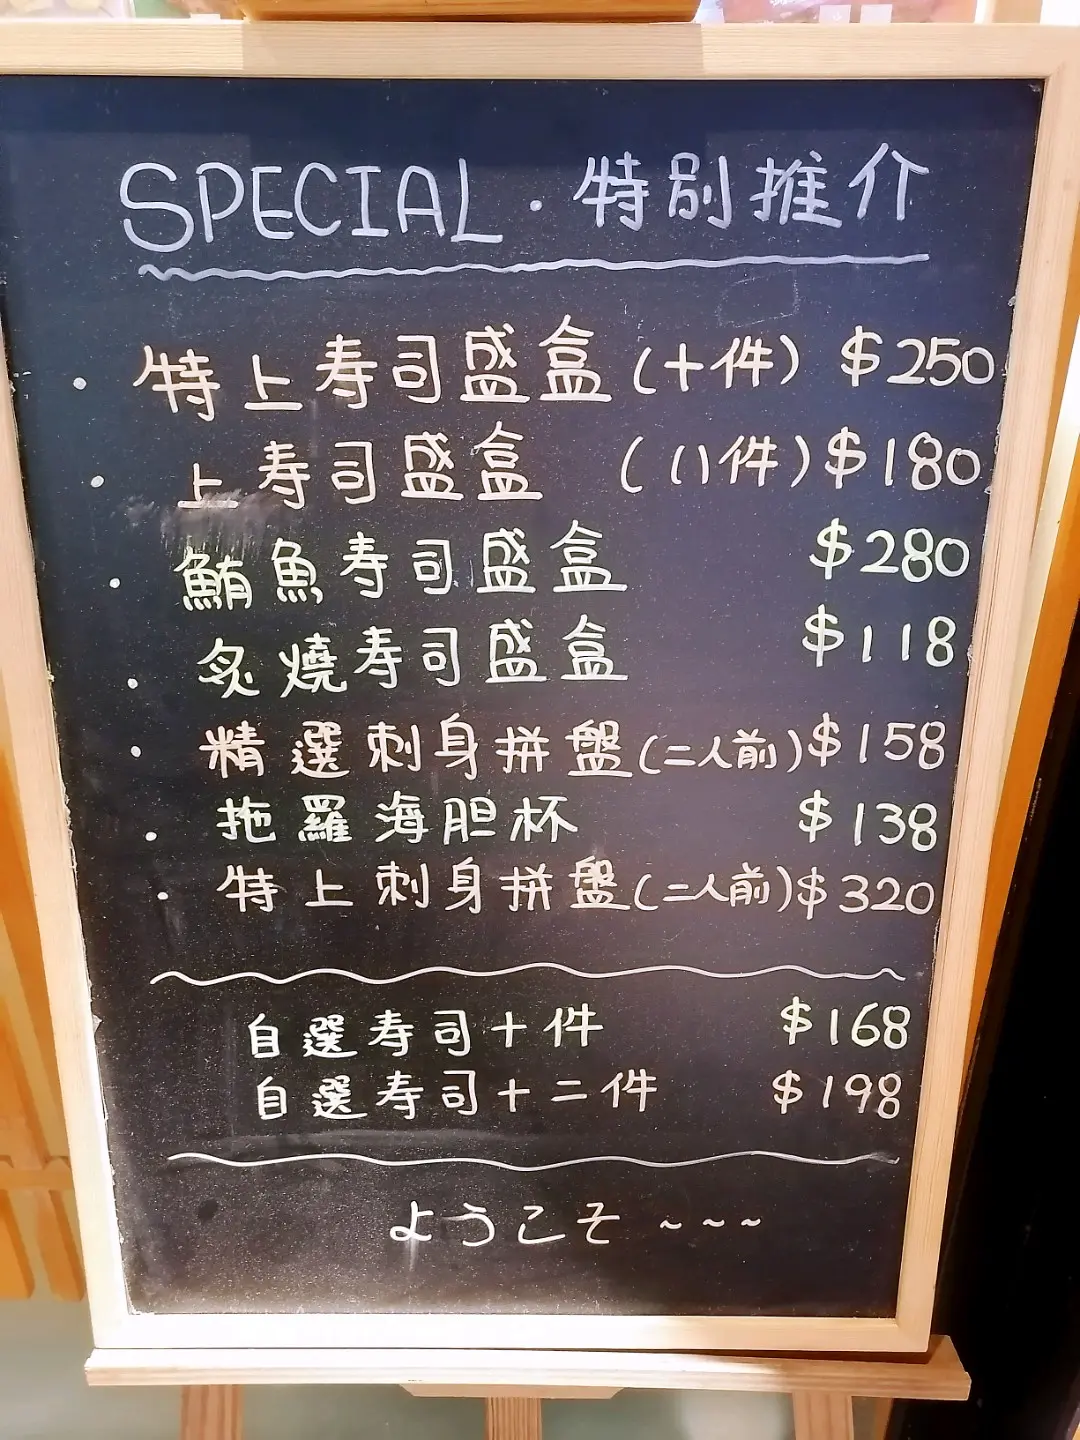 SPECIAL · 特別推介
· 特上寿司盛盒 (十件) $250
· 上寿司盛盒 (八件) $180
· 鮪魚寿司盛盒 $280
· 炙燒寿司盛盒 $118
· 精選刺身拼盤 (二人前) $158
· 拖羅海胆杯 $138
· 特上刺身拼盤 (二人前) $320
自選寿司十件 $168
自選寿司十二件 $198
ようこそ ~~~